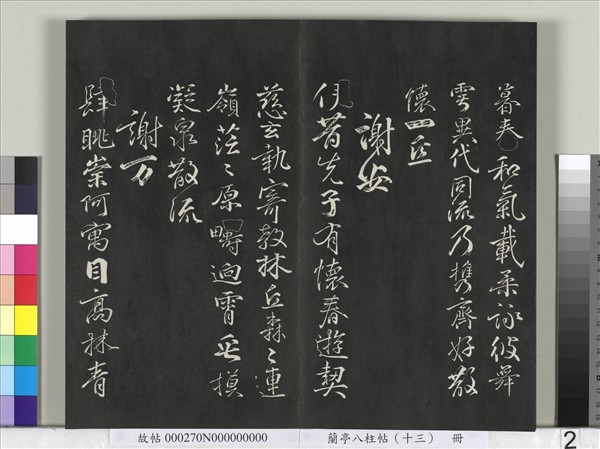 暮春和氣載柔詠彼舞
雩異代同流乃携齊好散
懷丘
謝安
伊昔先子有懷春遊契
慈玄執寄敖林丘森〻連
嶺茫〻原疇逈霄垂模
凝泉散流
謝万
肆眺崇阿寓目高林青
故帖 000270N000000000
蘭亭八柱帖（十三） 冊
2